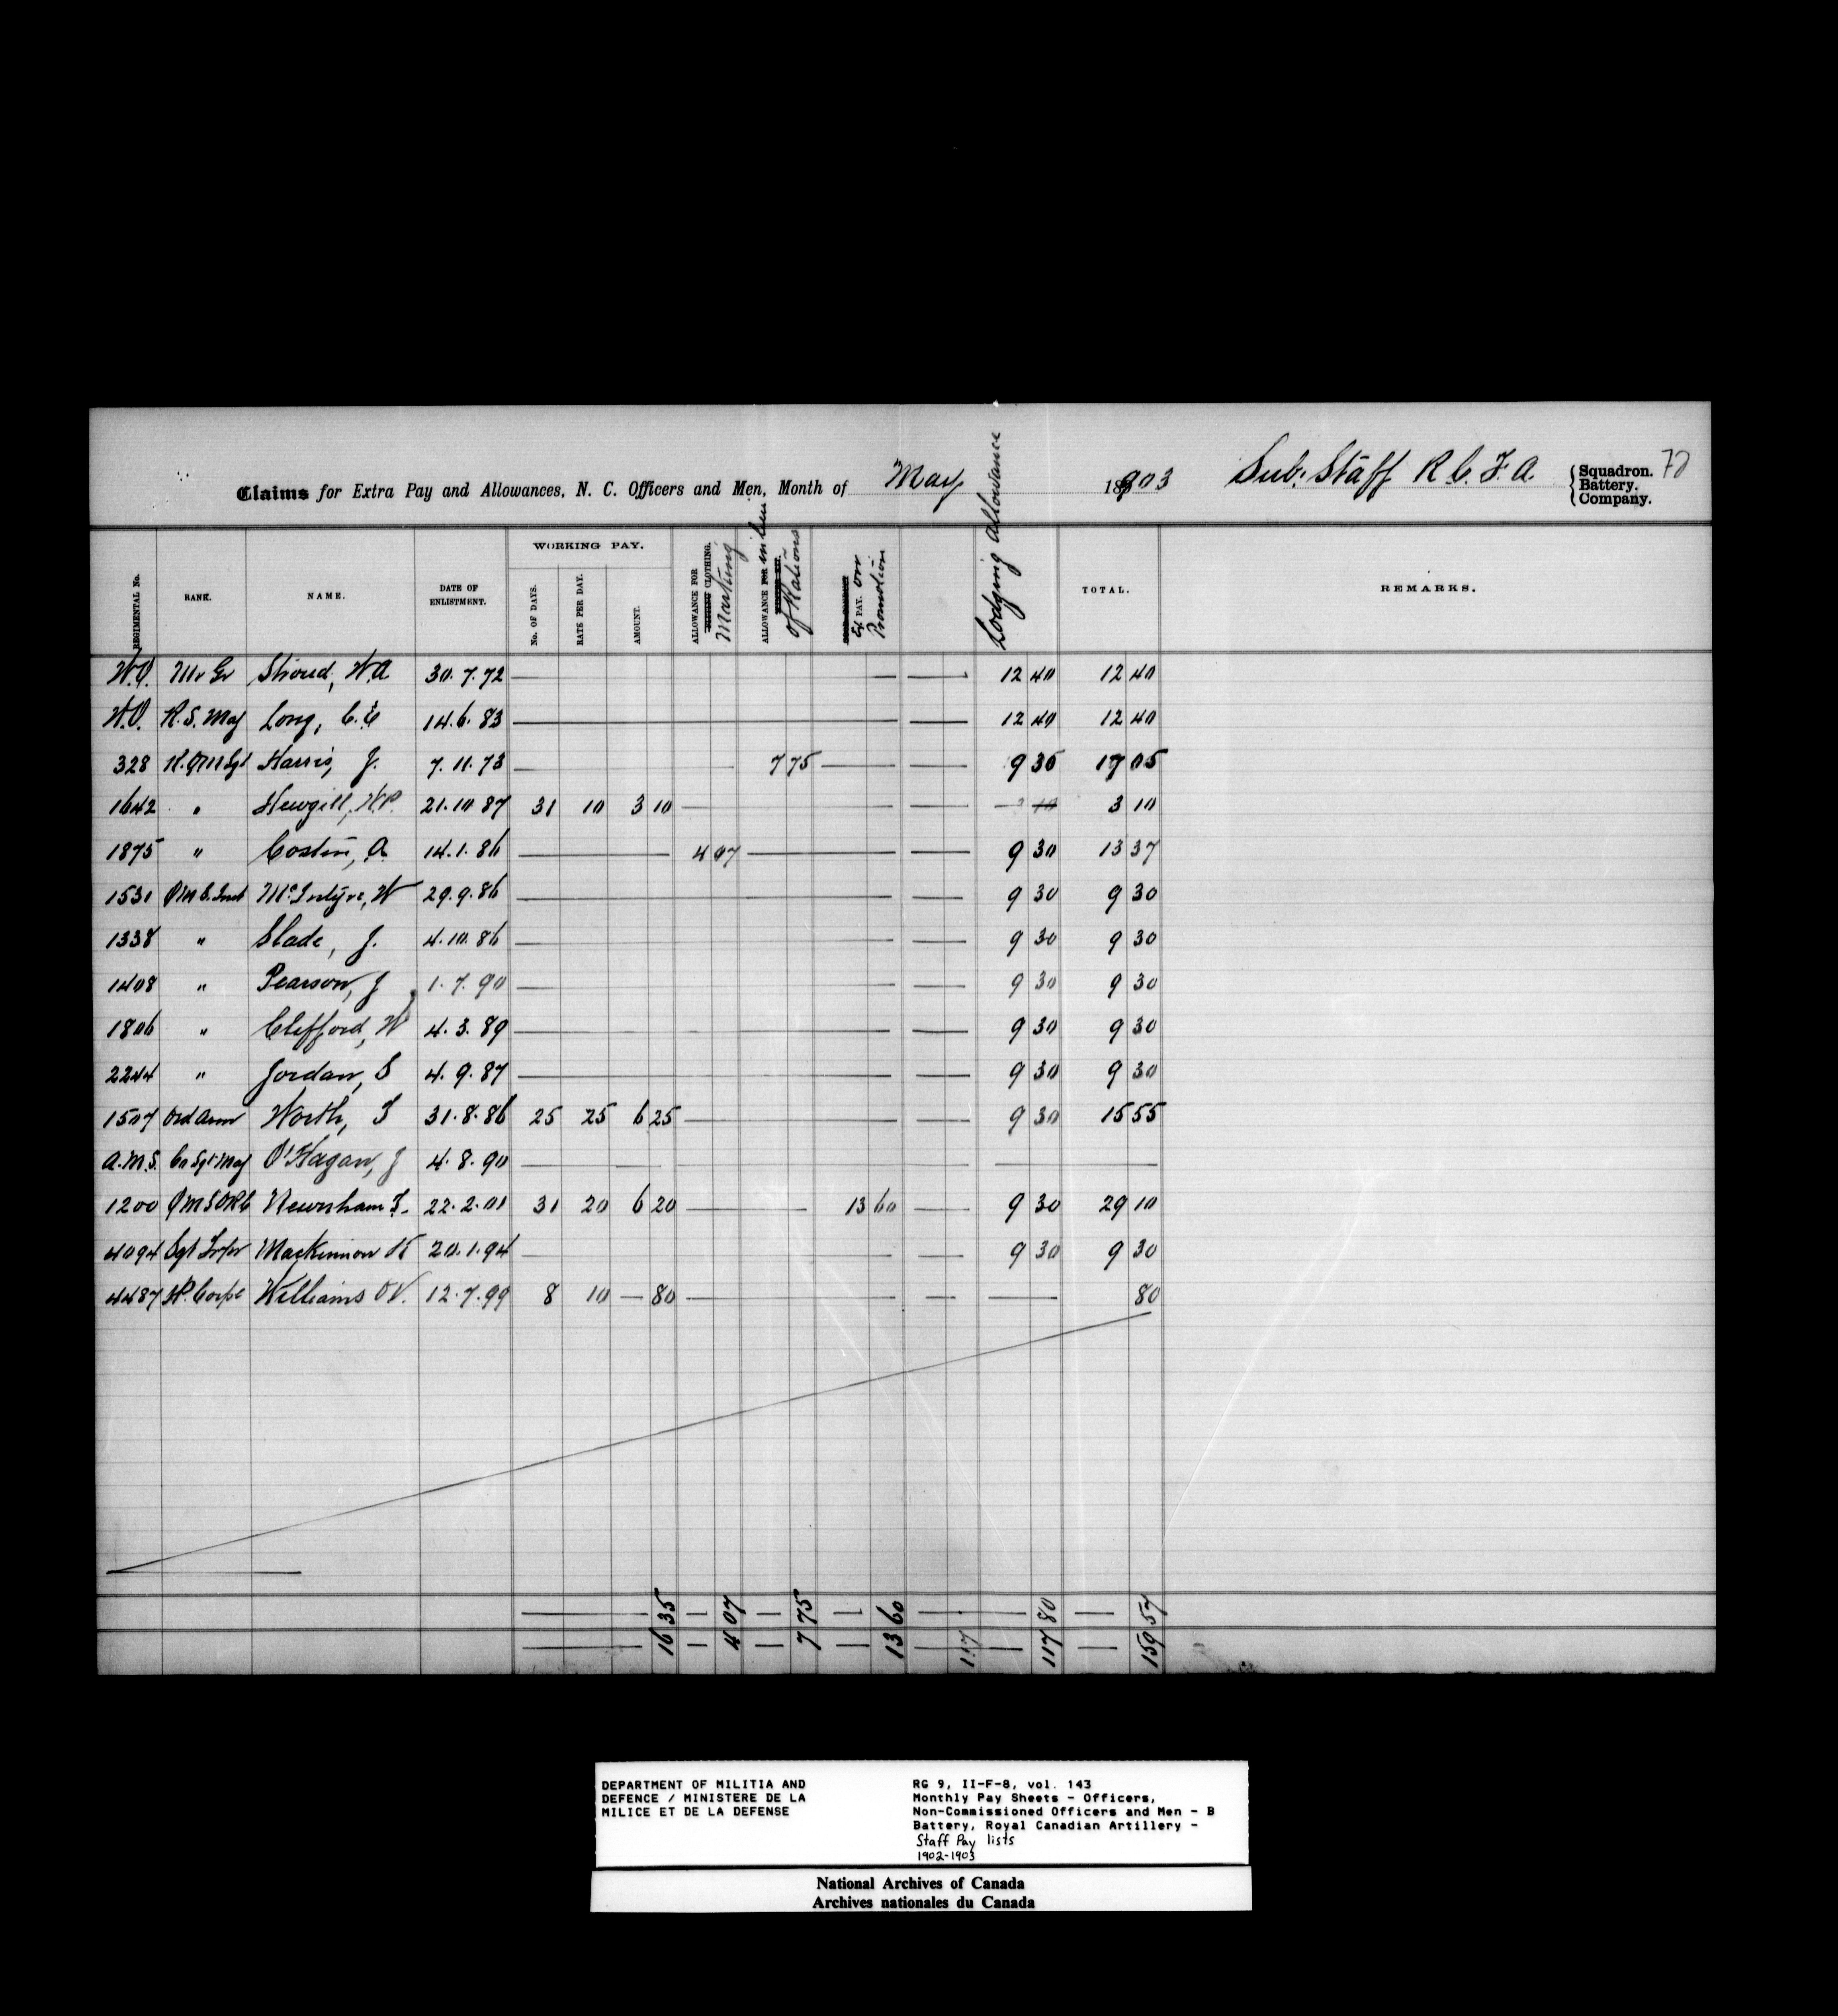 Claims for Extra Pay and Allowances, N. C. Officers and Men, Month of May 1903 Sub: Staff R C. F. A. Squadron. Battery. Company. 70
REGIMENTAL No. RANK. NAME. DATE OF ENLISTMENT. WORKING PAY. No. OF DAYS. RATE PER DAY. AMOUNT. ALLOWANCE FOR CLOTHING. Marking ALLOWANCE FOR in lieu of Rations Ex PAY. on Promotion Lodging Allowance TOTAL. REMARKS.
W.O. Mr Gr Stroud, W.A 30.7.72 — — 12 40 12 40
W.O. R.S. Maj Long, C.E 14.6.83 — — 12 40 12 40
328 R.QM Sgt Harris, J. 7.11.73 — 7 75 — — 9 30 17 05
1642 " Newgill, W.P. 21.10 87 31 10 3 10 — — 3 10
1875 " Costin, A. 14.1.86 — 4 07 — — 9 30 13 37
1531 McIntyre, W 29.9.86 — — 9 30 9 30
1338 " Slade, J. 4.10.86 — — 9 30 9 30
1408 " Pearson, J 1.7.90 — — 9 30 9 30
1806 " Clifford, W 4.3.89 — — 9 30 9 30
2244 " Jordan, S 4.9.87 — — 9 30 9 30
1507 Ord Arm Worth, T 31.8.86 25 25 6 25 — — 9 30 15 55
A.M.S. Sgt Maj O'Hagan, J 4.8.90 — — — —
1200 Newnham F. 22.2.01 31 20 6 20 — 13 60 — 9 30 29 10
4094 Sgt Trptr Mackinnon K 20.1.94 — — 9 30 9 30
4487 Corpl Williams O.V. 12.7.99 8 10 — 80 — — — 80
16 35 — 4 07 — 7 75 — 13 60 — 117 — 117 80 — 159 57
DEPARTMENT OF MILITIA AND
DEFENCE / MINISTERE DE LA
MILICE ET DE LA DEFENSE
RG 9, II-F-8, vol. 143
Monthly Pay Sheets - Officers,
Non-Commissioned Officers and Men - B
Battery, Royal Canadian Artillery -
Staff Pay lists
1902-1903
National Archives of Canada
Archives nationales du Canada